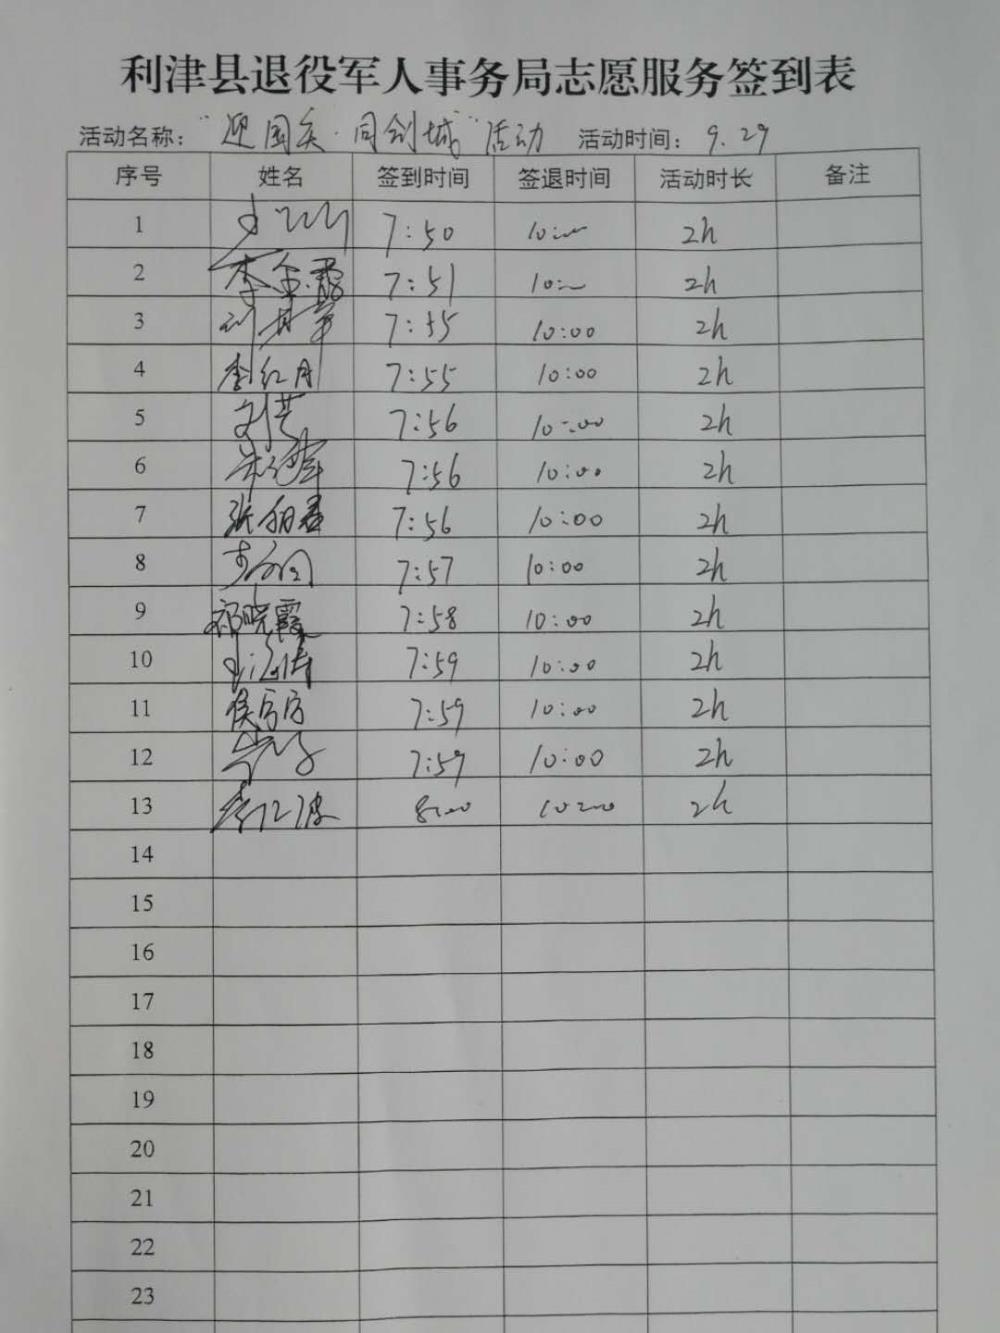 利津县退役军人事务局志愿服务签到表
活动名称："迎国庆·同创城"活动 活动时间：9.29
序号 姓名 签到时间 签退时间 活动时长 备注
1 7:50 10:00 2h
2 7:51 10:00 2h
3 7:55 10:00 2h
4 李红月 7:55 10:00 2h
5 刘芸 7:56 10:00 2h
6 7:56 10:00 2h
7 7:56 10:00 2h
8 7:57 10:00 2h
9 祁晓霞 7:58 10:00 2h
10 7:59 10:00 2h
11 7:59 10:00 2h
12 7:59 10:00 2h
13 8:00 10:00 2h
14
15
16
17
18
19
20
21
22
23